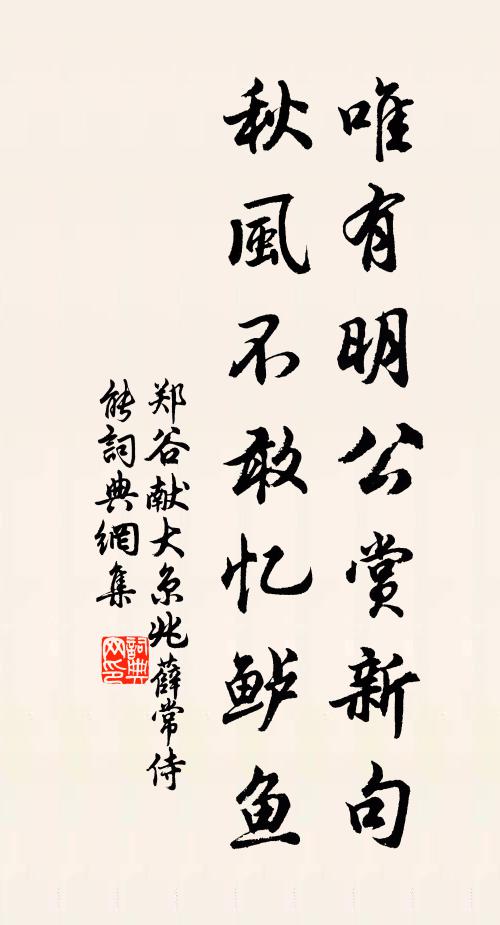 唯有明公赏新句
秋風不敢忆鲈鱼
郑谷献大京兆薛常侍
能詞典網集
詞典
网印